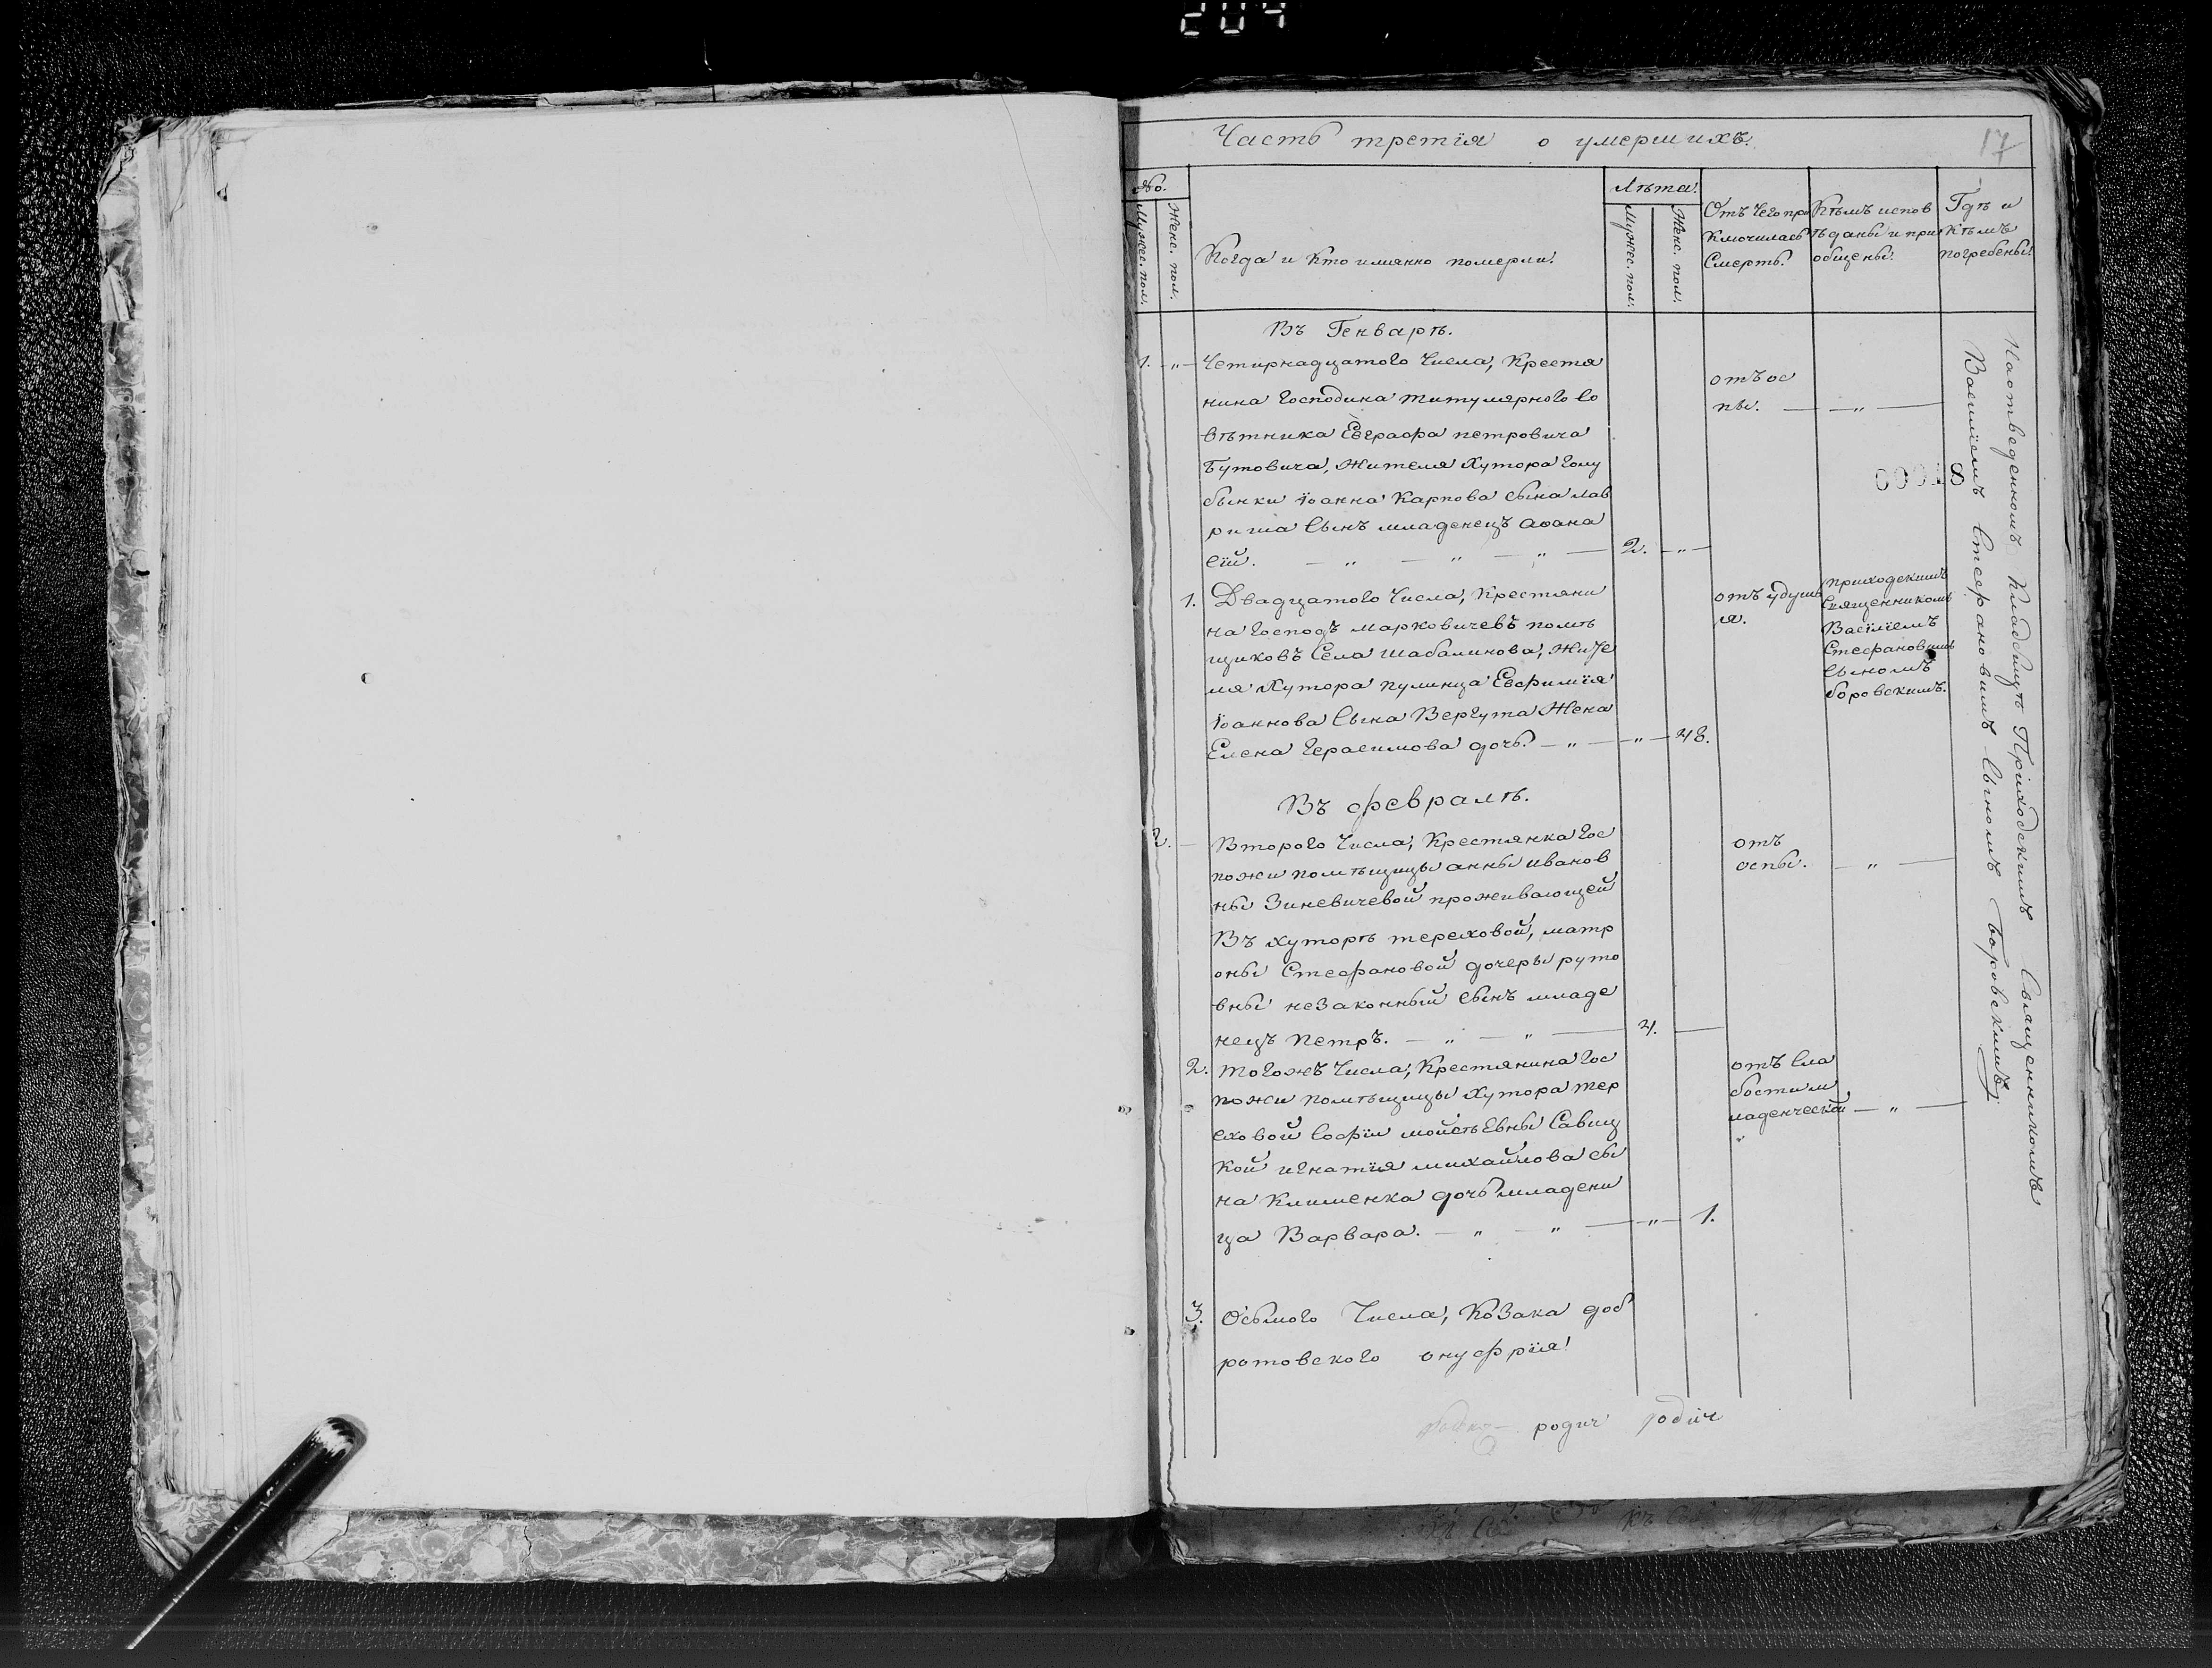 204
Часть третїя о умершихъ.
17
No.
Мужес. пол.
Женс. пол.
Когда и кто имянно померли.
Лѣта.
Мужес. пол.
Женс. пол.
Отъ чего при
ключилась
смерть.
Кѣмъ испов
ѣданы и при
общены.
Гдѣ и
кѣмъ
погребены.
Въ Генварѣ.
1. „ Четирнадцатого числа, крестя
нина господина титулярного со
вѣтника Евграфа петровича
Бутовича, жителя хутора голу
бынки їоанна карпова сына лав
риша сынъ младенецъ аѳана
сїй. „ „ „ 2. „
отъ ос
пы. „
00018
1. Двадцатого числа, крестяни
на господъ марковичевъ помѣ
щиковъ села шабалинова, жите
ля хутора пулинца Евфимїя
їоаннова сына Вергута жена
Елена герасимова дочь. „ „ 48.
отъ удушь
я.
приходскимъ
священникомъ
Васїлїемъ
Стефановимъ
сыномъ
боровскимъ.
Въ февралѣ.
2. Второго числа, крестянка гос
пожи помѣщицы анны иванов
ны Зиневичевой проживающей
Въ хуторѣ тереховой, матр
оны Стефановой дочеры руто
вны незаконный сынъ младе
нецъ петръ. „ „ 4.
отъ
оспы. „
2. тогожъ числа, крестянина гос
пожи помѣщицы хутора тер
еховой софїи мойсѣевны Савиц
кой игнатїя михайлова сы
на клименка дочь младени
ца Варвара. „ „ „ 1.
отъ сла
бости м
ладенческой „
3. Осьмого числа, козака доб
ротовского онуфрїя
Наотведенномъ кладбищѣ Прїиходскимъ Священникомъ
Васїлїемъ Стефановимъ сыномъ Боровскимъ
родич родїч